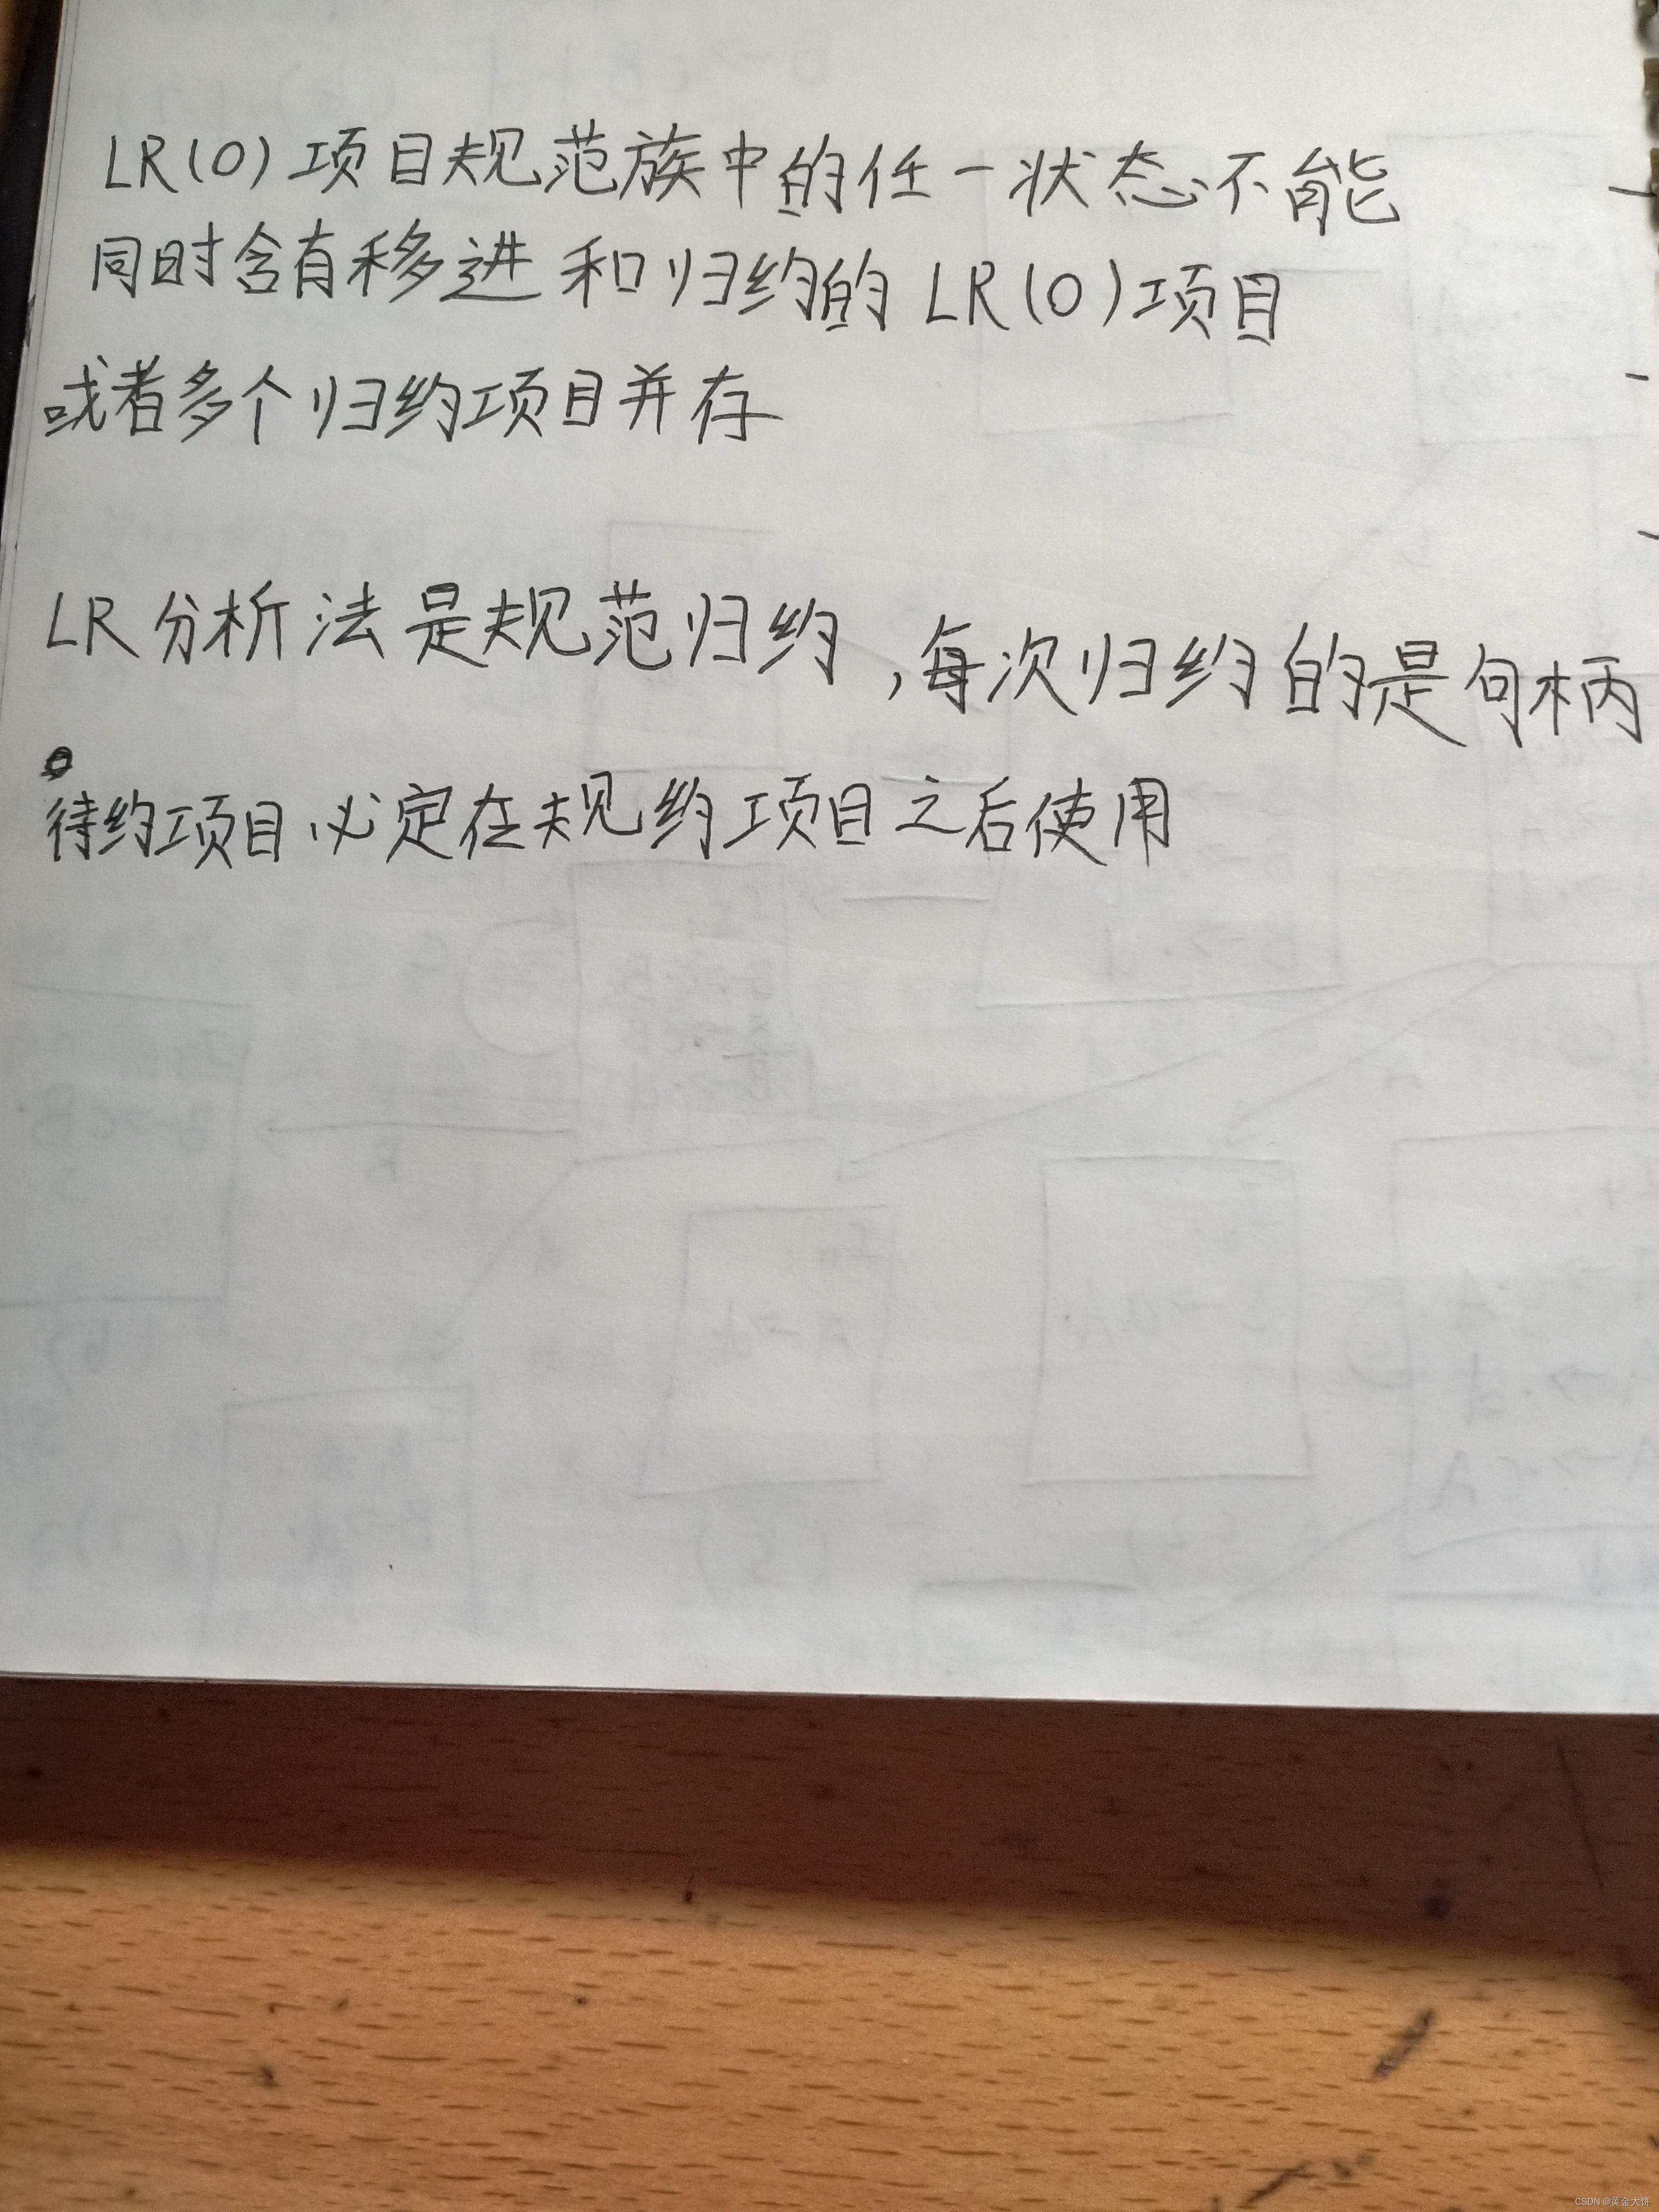 LR(0)项目规范族中的任一状态不能
同时含有移进和归约的LR(0)项目
或者多个归约项目并存
LR分析法是规范归约,每次归约的是句柄
待约项目必定在规约项目之后使用
CSDN @黄金大饼